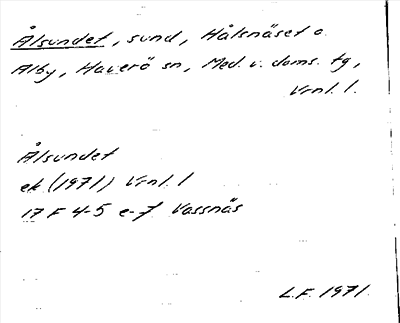 Ålsundet, sund, Hålsnäset o.
Alby, Haverö sn, Med. v. doms. tg,
Vrnl. l.
Ålsundet
ek (1971) Vrnl. l
17 F 4-5 e-f Vassnäs
L.F. 1971.